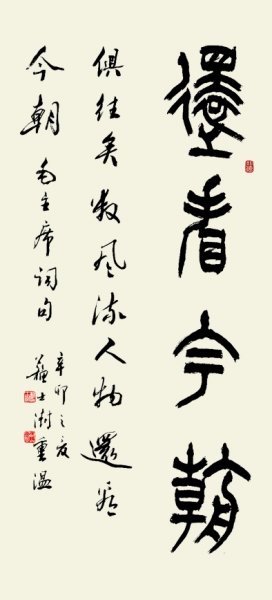 還看今朝
俱往矣數風流人物還看
今朝 毛主席詞句
辛卯之夏
蘇士澍重溫